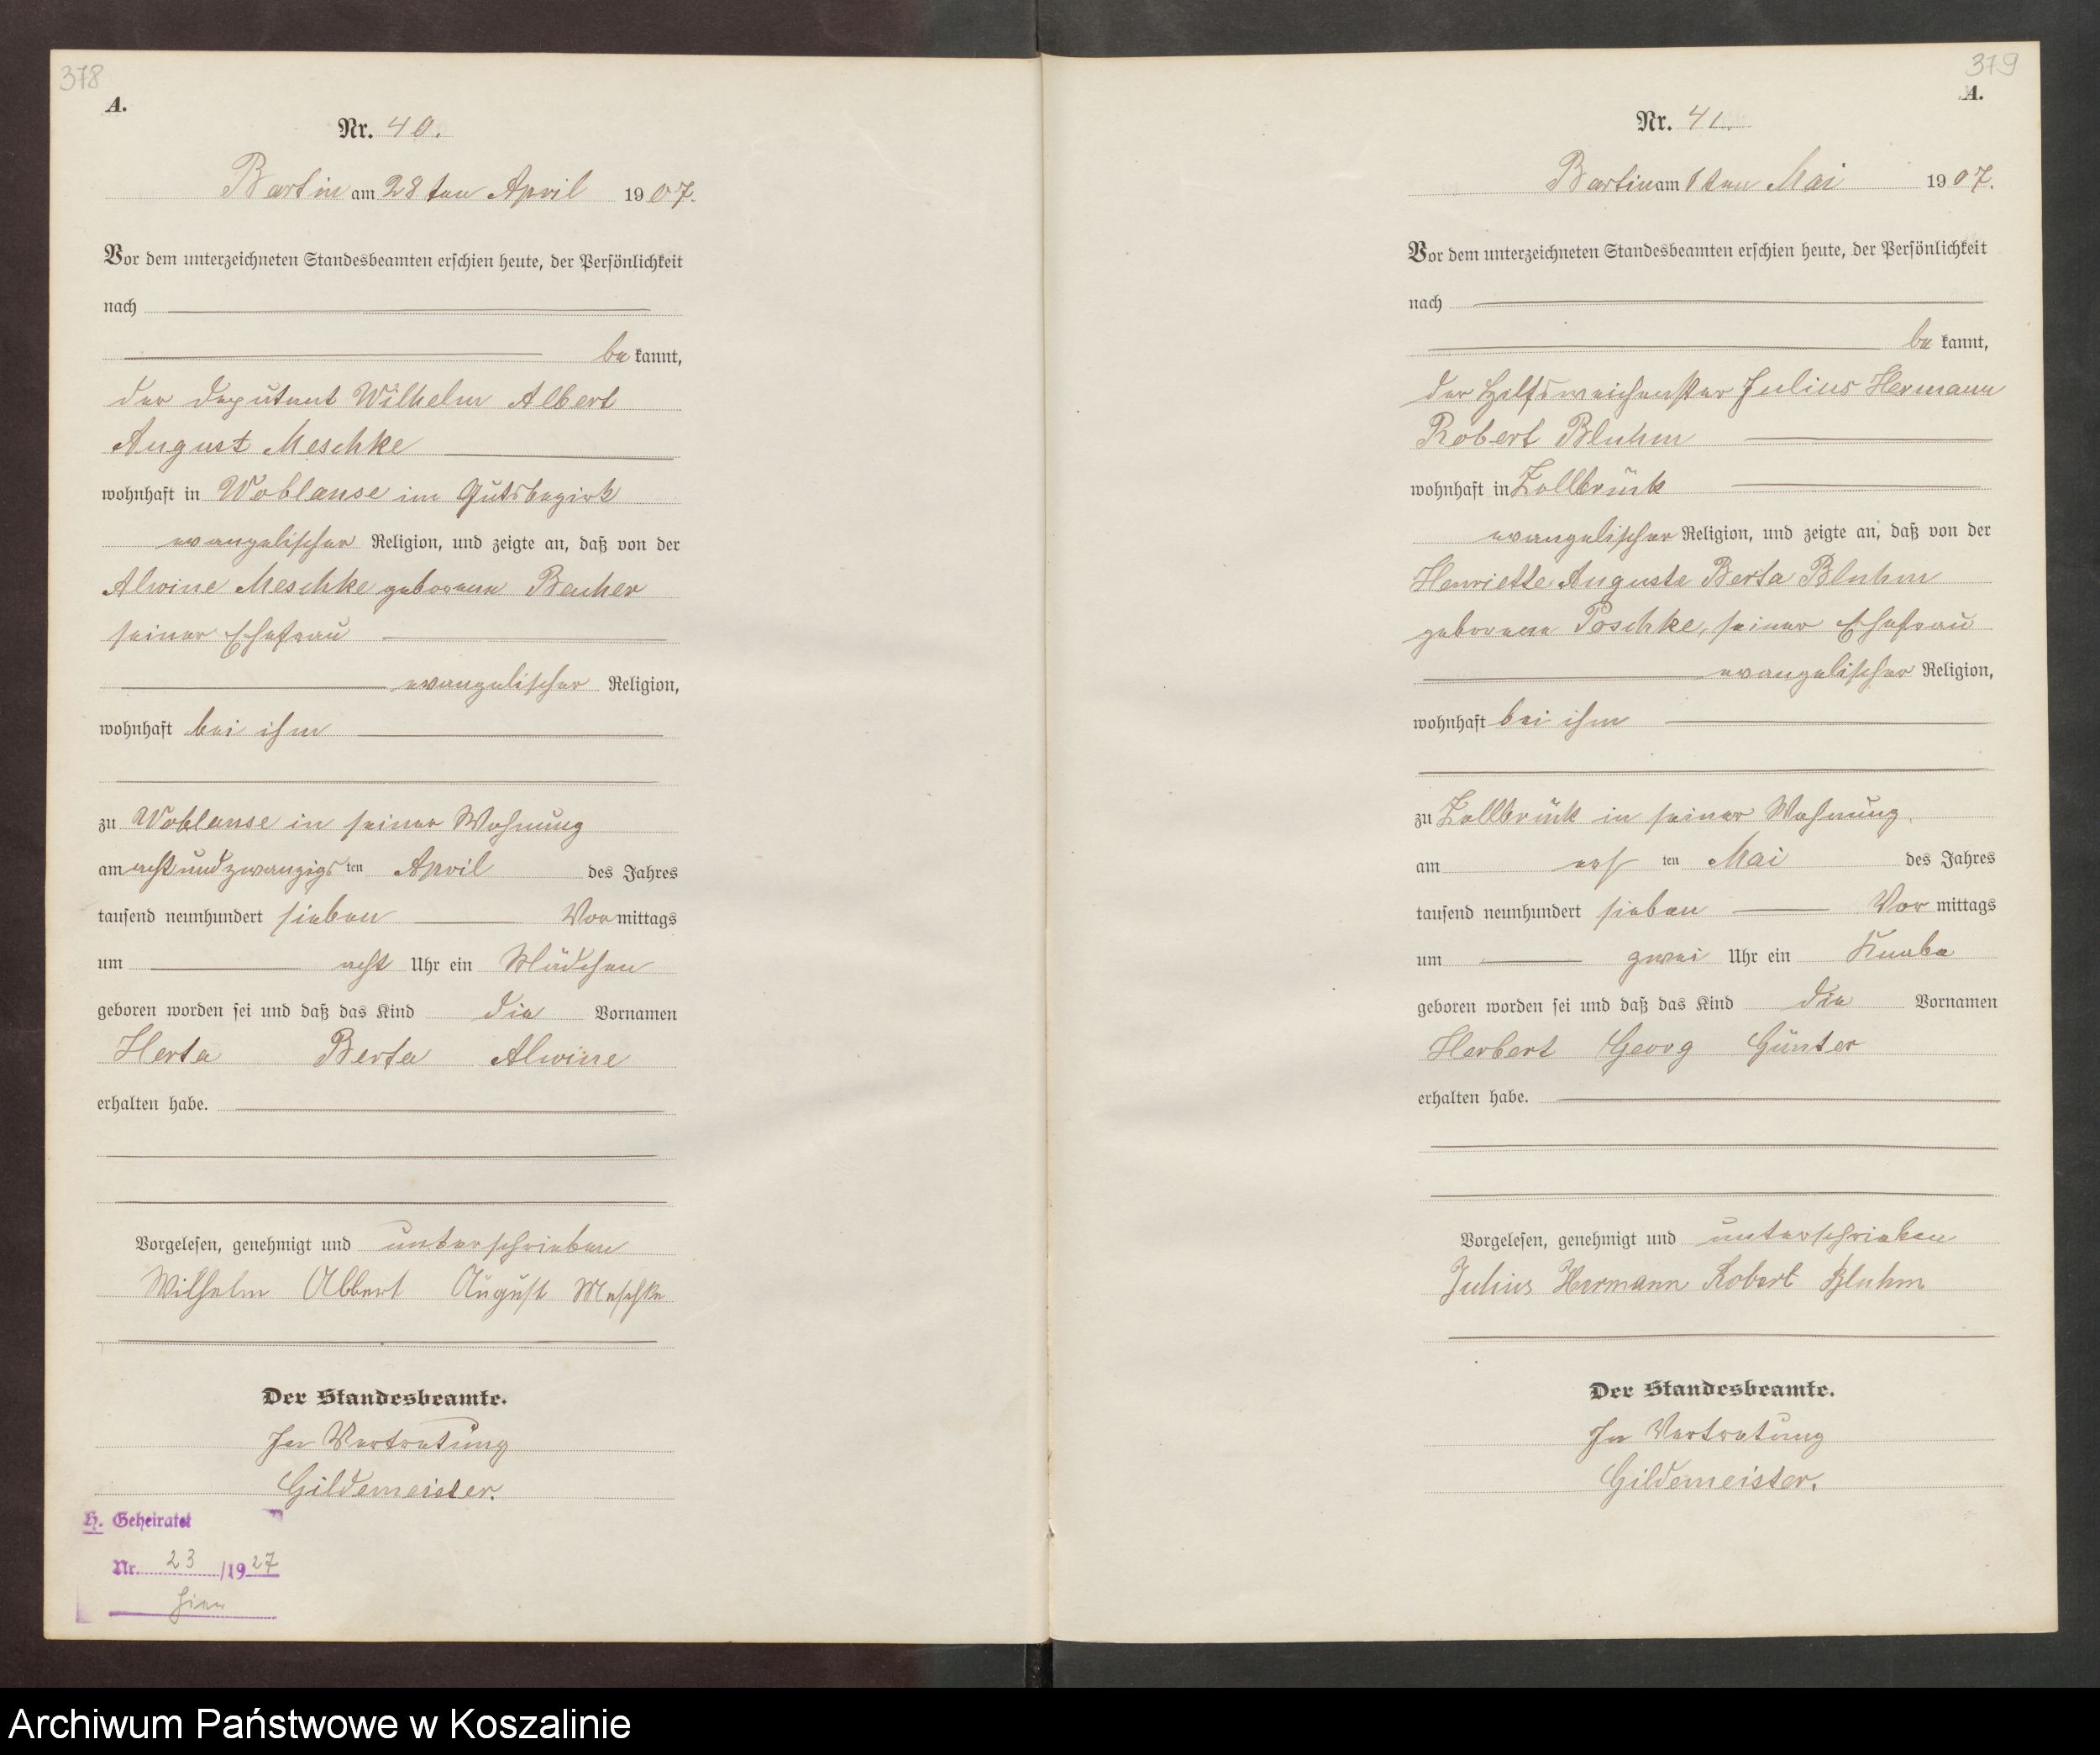 378
A.
Nr. 40.
Bartin am 28ten April 1907.
Vor dem unterzeichneten Standesbeamten erschien heute, der Persönlichkeit
nach
bekannt,
der Deputant Wilhelm Albert
August Meschke
wohnhaft in Woblanse im Gutsbezirk
evangelischer Religion, und zeigte an, daß von der
Alwine Meschke geborene Becher
seiner Ehefrau
evangelischer Religion,
wohnhaft bei ihm
zu Woblanse in seiner Wohnung
am achtundzwanzigsten April des Jahres
tausend neunhundert sieben Vormittags
um acht Uhr ein Mädchen
geboren worden sei und daß das Kind die Vornamen
Herta Berta Alwine
erhalten habe.
Vorgelesen, genehmigt und unterschrieben
Wilhelm Albert August Meschke
Der Standesbeamte.
In Vertretung
Gildemeister.
H. Geheiratet
Nr. 23/1927
hier
379
A.
Nr. 41.
Bartin am 1ten Mai 1907.
Vor dem unterzeichneten Standesbeamten erschien heute, der Persönlichkeit
nach
bekannt,
der Hilfsweichenster Julius Hermann
Robert Bluhm
wohnhaft in Zollbrück
evangelischer Religion, und zeigte an, daß von der
Henriette Auguste Berta Bluhm
geborene Poschke, seiner Ehefrau
evangelischer Religion,
wohnhaft bei ihm
zu Zollbrück in seiner Wohnung.
am ersten Mai des Jahres
tausend neunhundert sieben Vormittags
um zwei Uhr ein Knabe
geboren worden sei und daß das Kind die Vornamen
Herbert Georg Günter
erhalten habe.
Vorgelesen, genehmigt und unterschrieben
Julius Hermann Robert Bluhm
Der Standesbeamte.
In Vertretung
Gildemeister.
Archiwum Państwowe w Koszalinie